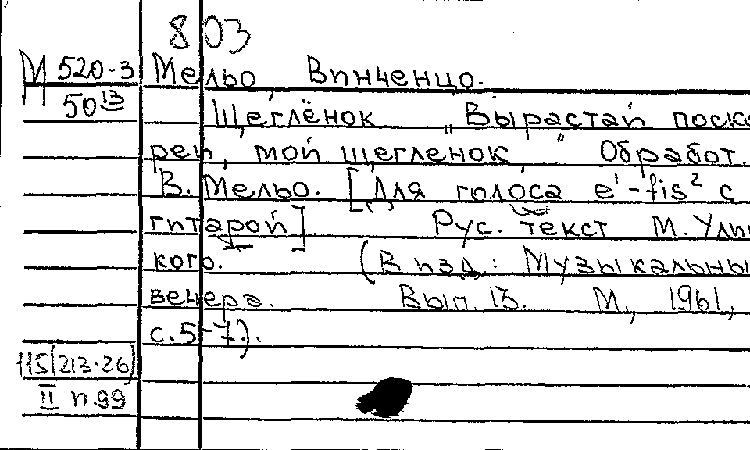 803
М 520-3 Мельо, Винченцо.
50 13 Щеглёнок „Вырастай поско
рей, мой щегленок." Обработ.
В. Мельо. [Для голоса e¹-fis² с
гитарой] Рус. текст М. Улиц
кого. (В изд: Музыкальны
вечера. Вып. 13. М., 1961,
с. 5-7.).
115(213-26)
II п.99